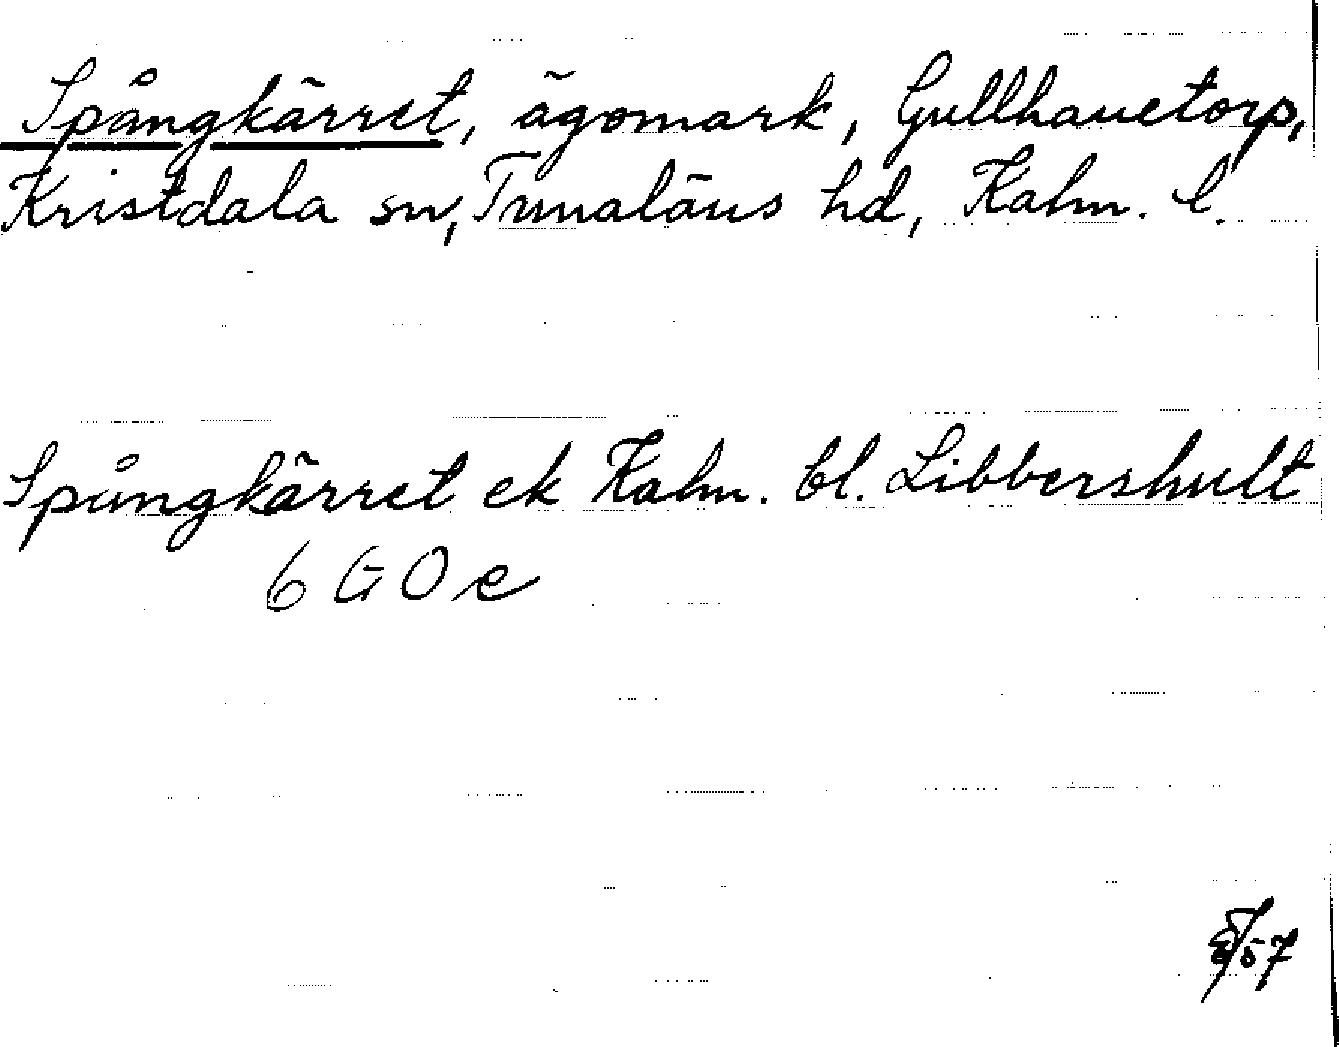 Spångkärret, ägomark, Gullhanetorp,
Kristdala sn, Tunaläns hd, Kalm. l.
Spångkärret ek Kalm. bl. Libbershult
6 G O e
/57